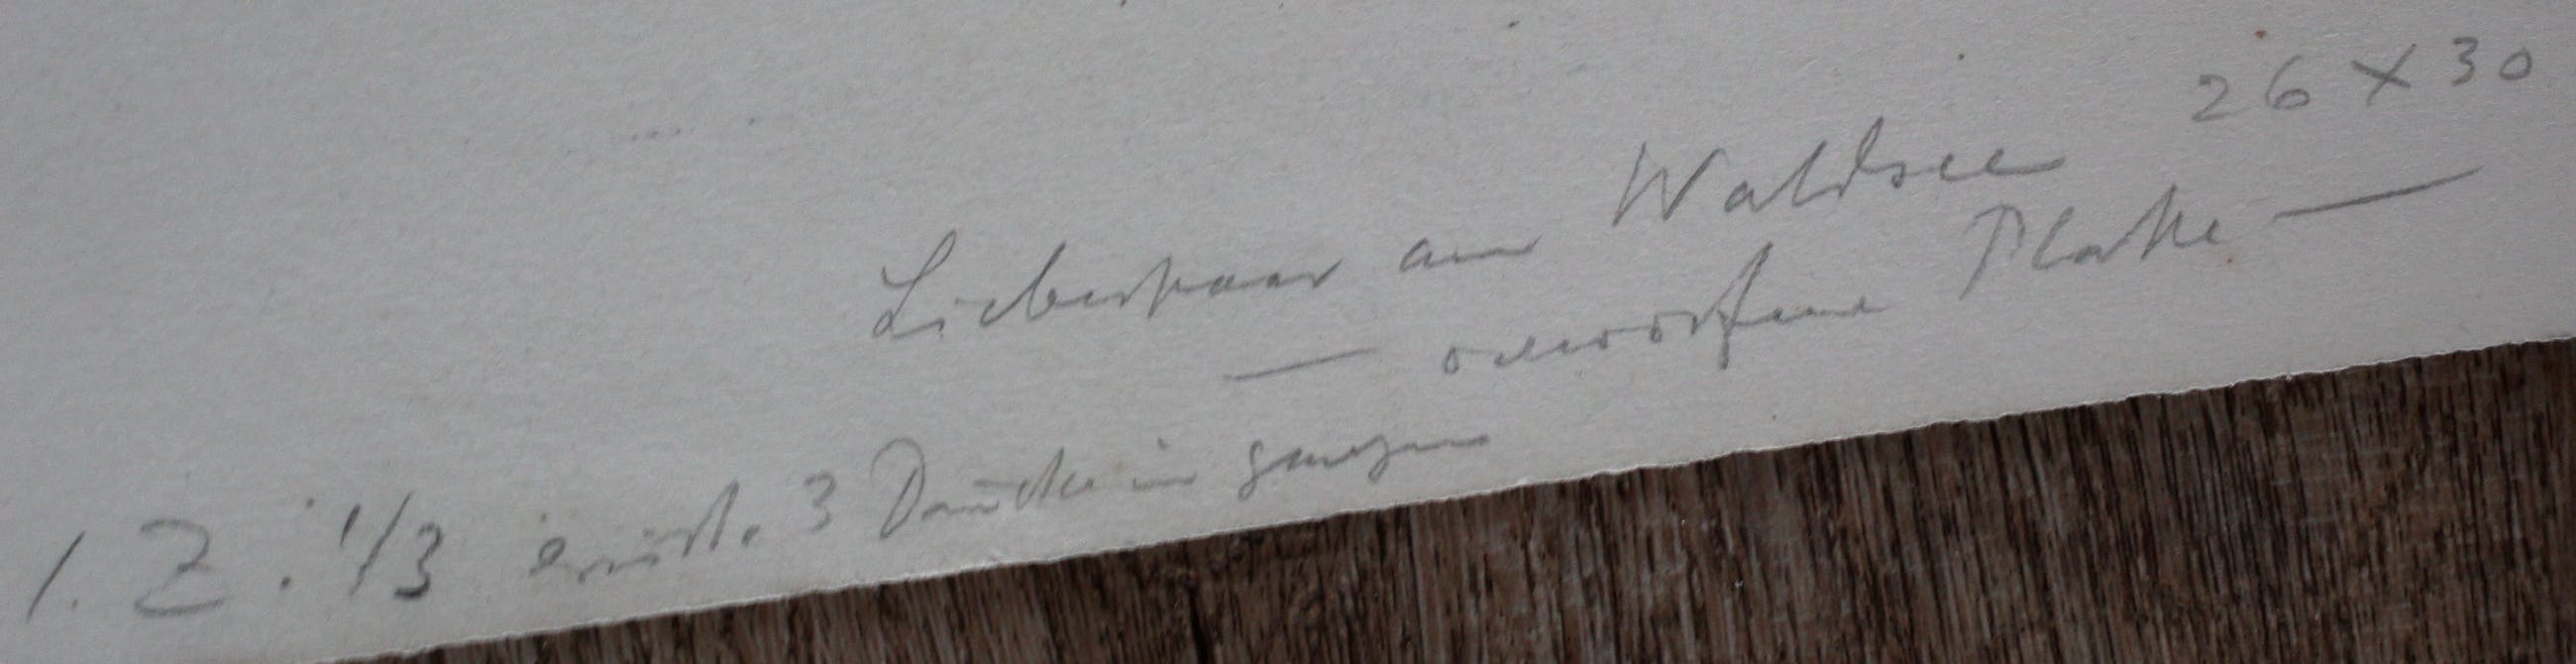 26 X 30
Liebespaar am Waldsee
— verworfene Platte —
1. Z. 1/3 exist. 3 Drucke im ganzen